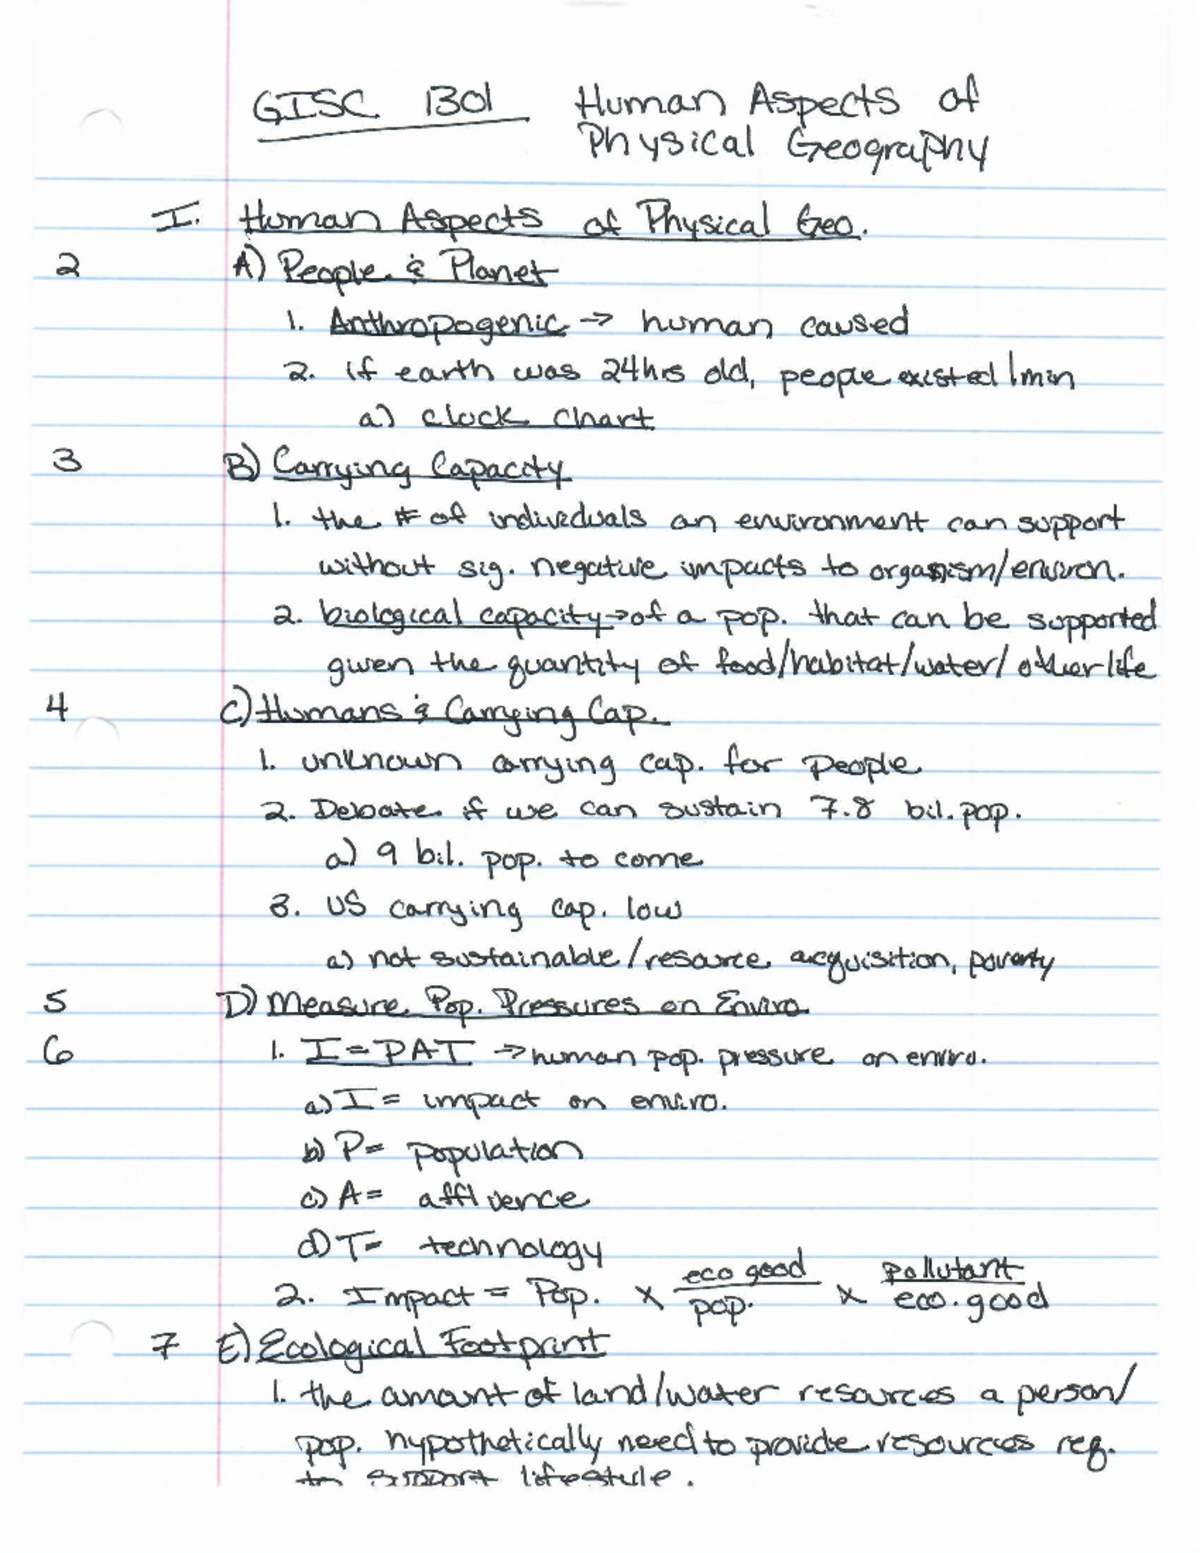 GISC 1301 Human Aspects of
Physical Geography
I. Human Aspects of Physical Geo.
2 A) People & Planet
1. Anthropogenic → human caused
2. if earth was 24hrs old, people existed 1min
a) clock chart
3 B) Carrying Capacity
1. the # of individuals an environment can support
without sig. negative impacts to organism/environ.
2. biological capacity → of a pop. that can be supported
given the quantity of food/habitat/water/other life
4 C) Humans & Carrying Cap.
1. unknown carrying cap. for people
2. Debate if we can sustain 7.8 bil. pop.
a) 9 bil. pop. to come
3. US carrying cap. low
a) not sustainable/resource acquisition, poverty
5 D) Measure Pop. Pressures on Enviro
6 1. I=PAT → human pop. pressure on enviro.
a) I = impact on enviro.
b) P= population
c) A= affluence
d) T= technology
2. Impact = Pop. x eco good/pop. x Pollutant/eco. good
7 E) Ecological Footprint
1. the amount of land/water resources a person/
pop. hypothetically need to provide resources req.
to support lifestyle.